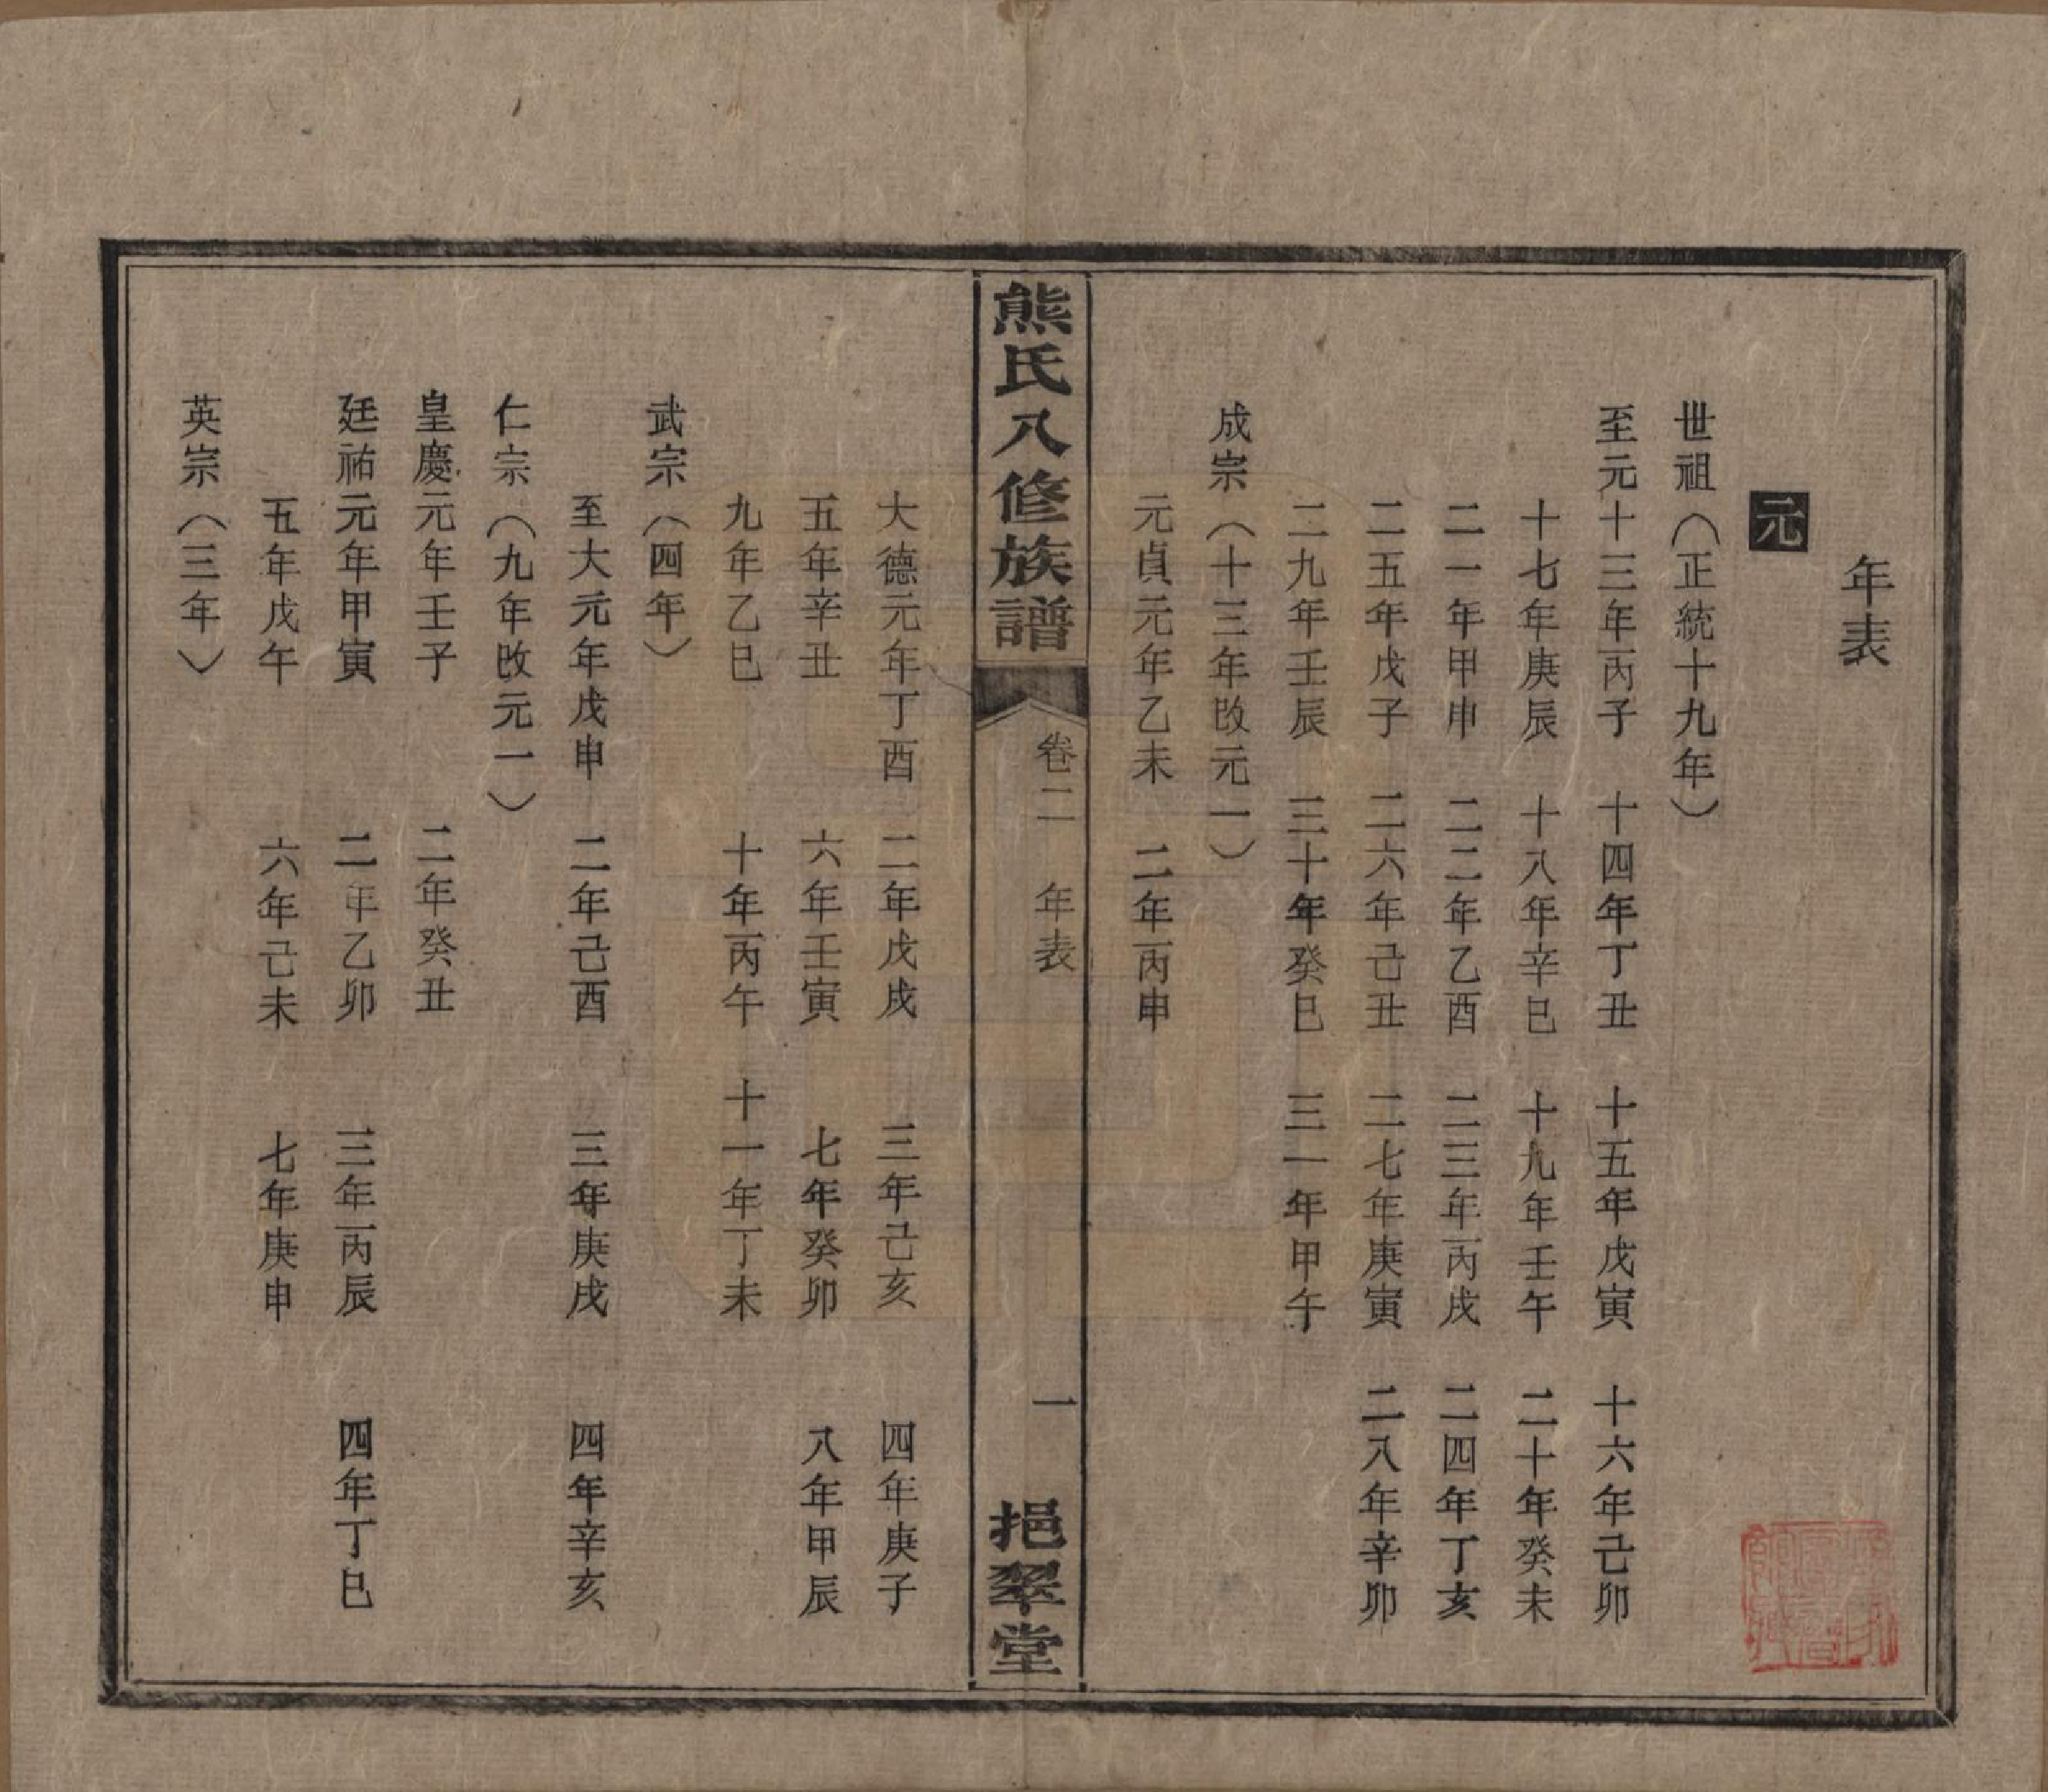 年表
元
世祖（正統十九年）
至元十三年丙子　十四年丁丑　十五年戊寅　十六年己卯
十七年庚辰　十八年辛巳　十九年壬午　二十年癸未
二一年甲申　二二年乙酉　二三年丙戌　二四年丁亥
二五年戊子　二六年己丑　二七年庚寅　二八年辛卯
二九年壬辰　三十年癸巳　三一年甲午
成宗（十三年改元一）
元貞元年乙未　二年丙申
熊氏八修族譜
卷二　年表
一
挹翠堂
大德元年丁酉　二年戊戌　三年己亥　四年庚子
五年辛丑　六年壬寅　七年癸卯　八年甲辰
九年乙巳　十年丙午　十一年丁未
武宗（四年）
至大元年戊申　二年己酉　三年庚戌　四年辛亥
仁宗（九年改元一）
皇慶元年壬子　二年癸丑
廷祐元年甲寅　二年乙卯　三年丙辰　四年丁巳
五年戊午　六年己未　七年庚申
英宗（三年）